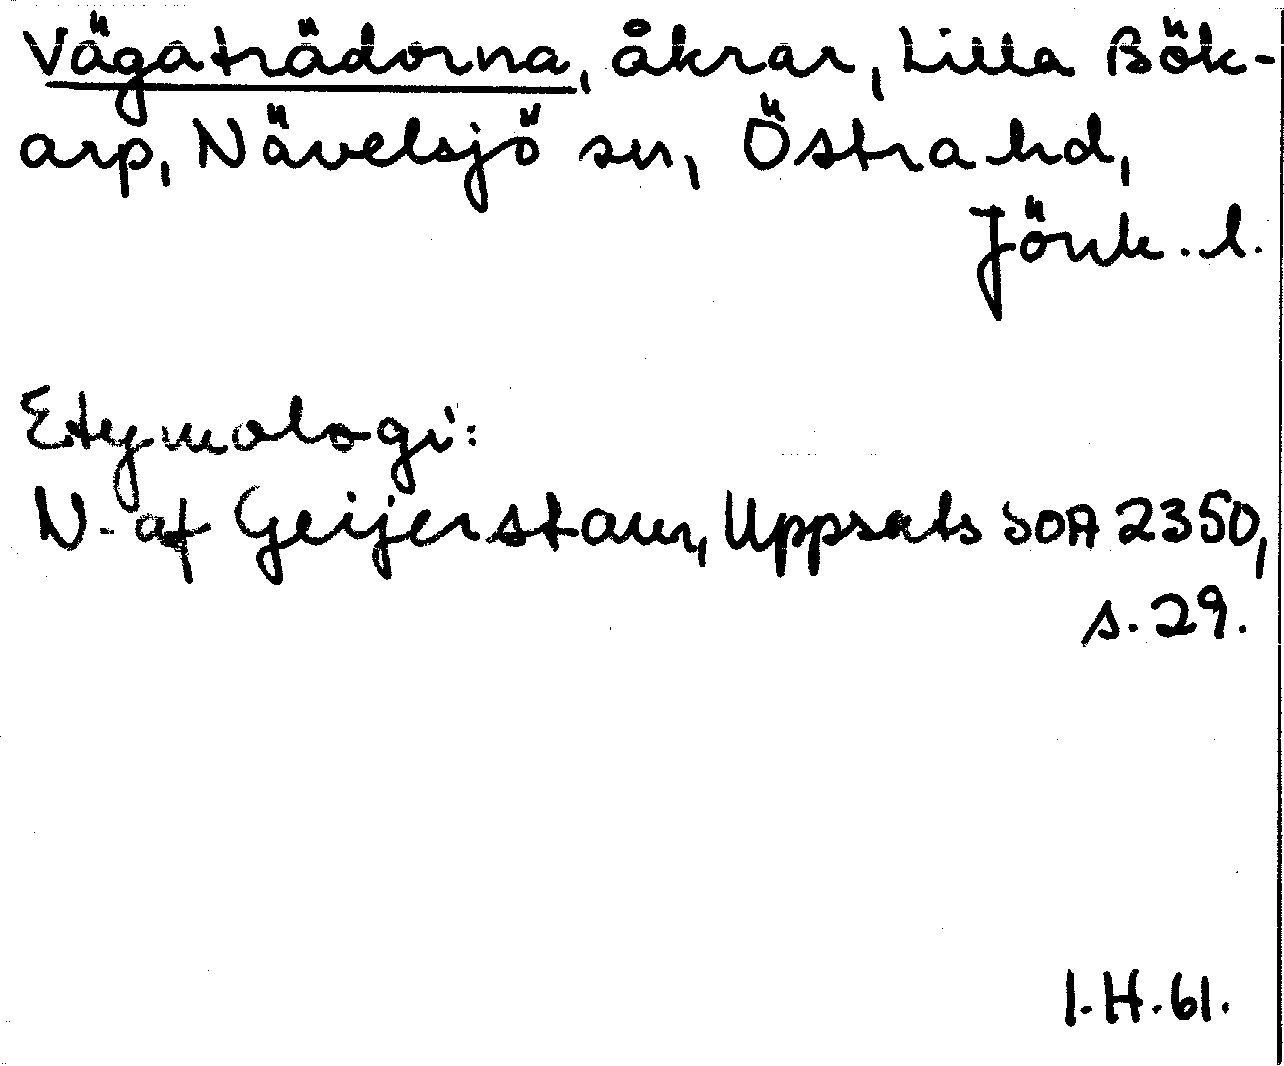 Vägaträdorna, åkrar, Lilla Bök-
arp, Nävelsjö sn, Östra hd,
Jönk. l.
Etymologi:
N. af Geijerstam, Uppsats SOA 2350,
s. 29.
I.H.61.